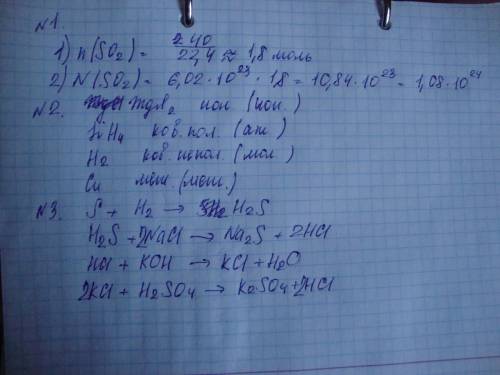 №1.
1) n(SO₂) = 240/22,4 ≈ 1,8 моль
2) N(SO₂) = 6,02·10²³ · 1,8 = 10,84·10²³ = 1,08·10²⁴
№2. ион. (ион.)
SiH₄ ков. пол. (ат.)
H₂ ков. непол. (мол.)
Cu мет. (мет.)
№3. S + H₂ → H₂S
H₂S + 2NaCl → Na₂S + 2HCl
HCl + KOH → KCl + H₂O
2KCl + H₂SO₄ → K₂SO₄ + 2HCl